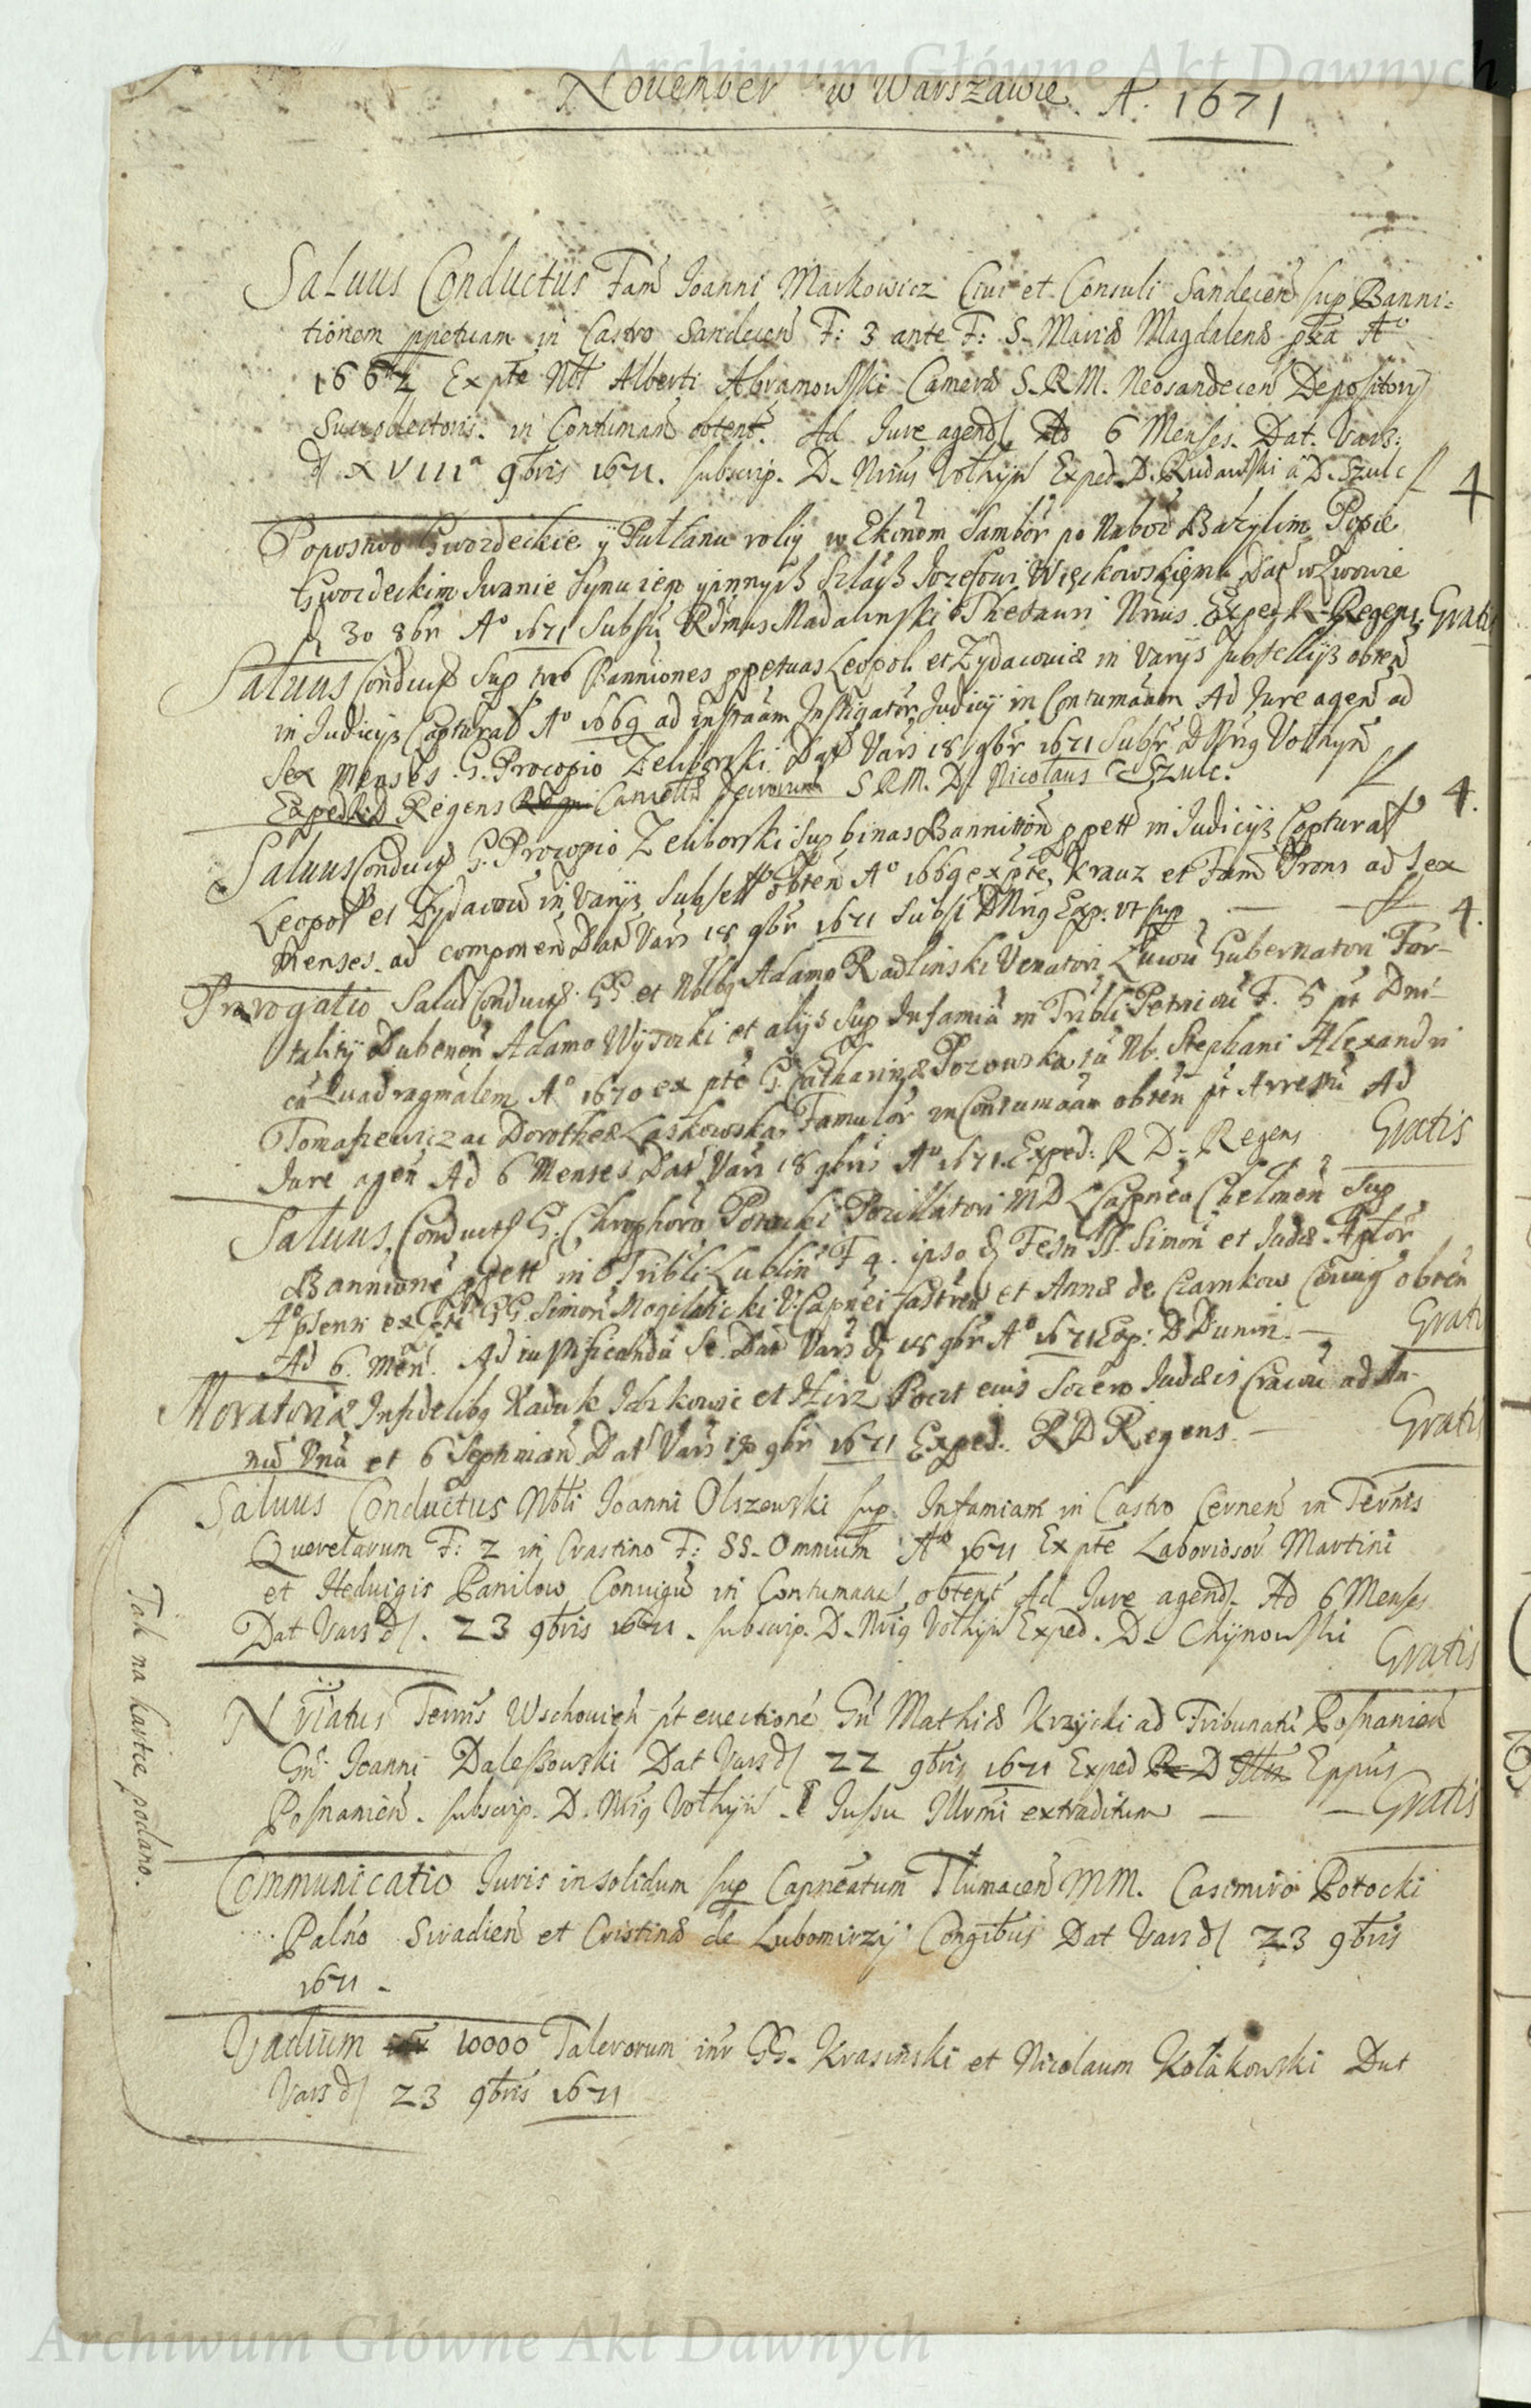 Archiwum Główne Akt Dawnych
Nouember w Warszawie. A. 1671
Saluus Conductus Fam Joanni Markowicz Ciui et Consuli Sandecen sup Banni-
tionem ppetuam in Castro Sandecen F: 3 ante F: S. Mariæ Magdalenæ pxa A°
1662 Ex pte Nbl Alberti Abramowski Cameræ S.R.M. Neosandecen Depositorij
Succollectoris. in Contumam obtent. Ad Jure agend Ad 6 Menses. Dat. Vars:
d XVIIIa 9bris 1671. subscrip. D. Nrius Vothyn Exped D. Rudawski a D. Szulc fl 4
Popostwo Gwozdeckie y Pułłanu roliy w Ekonom Sambor po Naboz Bazylim Popie
Gwozdeckim Jwanie Synu iego y innych Szlach Jozefowi Więckowskiemu Dat w Lwowie
d 30 8br A° 1671 Subscr Rdmus Madalinski Thesauri Nrius Exped R Regens Gratis
Saluus Conduct Sup tres Banniones ppetuas Leopol. et Zydaczouiæ in Varijs subsellijs obten
in Judicijs Captural A° 1669 ad instaam Instigator Judicij in Contumaam Ad Jure agen ad
sex Menses G. Procopio Zeliborski Dat Vars 18 9br 1671 Subscr D Nrius Vothyn
Exped Regens Cancell S R M. D. Nicolaus Szulc. fl 4.
Saluus Conduct G. Procopio Zeliborski sup binas Bannition ppett in Judicijs Captural
Leopol et Zydaczou in Varijs Subsell obten A° 1669 ex pte Krauz et Fam Prons ad sex
Menses ad componen Dat Vars 18 9br 1671 Subsc D Nrius Exp. vt sup — fl 4.
Prorogatio Salui Conduct GG et Nblbus Adamo Radlinski Venatori Lucou Gubernatori For-
tality Dubenen Adamo Wysocki et alijs Sup Infamia in Tribli Petricou F. 5 pt Dni-
ca Quadragmalem A° 1670 ex pte G. Catharinæ Pozowska tu Nb. Stephani Alexandri
Tomaszewicz ac Dorotheæ Laskowska Famulor in Contumaam obten pt Arrestu Ad
Jure agen Ad 6 Menses Dat Vars 18 9bris A° 1671 Exped: R D. Regens Gratis
Saluus Conduct G. Chrophoro Potocki Pocillatori M D L Capneo Chelmen Sup
Bannione ppett in Tribli Lublin F 4. ipso d Festi SS. Simon et Judæ Aptor
A° psenti ex pte GG. Simon Mogilnicki V. Capnei Castren et Annæ de Czarnkow Coniug obten
Ad 6 Men. Ad iustificandu Se Dat Vars d 18 9br A° 1671 Exp: D Dunin — Gratis
Moratoriæ Infidelibus Kaduk Jzkowic et Hirz Pocrt eius Socero Judæis Cracou ad An-
nu Vnu et 6 Septiman Dat Vars 18 9br 1671 Exped. R D Regens — Gratis
Saluus Conductus Nbli Joanni Olszewski sup Infamiam in Castro Cernen in Ternis
Querelarum F: 2 in Crastino F: SS. Omnium A° 1671 Ex pte Laboriosor Martini
et Heduigis Panilow Coniugu in Contumaac obtent Ad Jure agend Ad 6 Menses
Dat Vars d. 23 9bris 1671. subscrip. D. Nrius Vothyn Exped. D. Chynowski Gratis
Nriatus Terrus Wschouien pt euectione Gn Mathiæ Krzycki ad Tribunatu Posnanien
Gn: Joanni Daleszowski Dat Vars d 22 9bris 1671 Exped D Eppus
Posnanien. subscrip. D. Nrius Vothyn. Jussu Illrmi extraditum — — Gratis
Communicatio Juris in solidum sup Capneatum Tlumacen MM. Casimiro Potocki
Palno Siradien et Cristinæ de Lubomirzy Congibus Dat Vars d 23 9bris
1671 -
Vadium 10000 Talerorum inr GG. Krasinski et Nicolaum Kołakowski Dat
Vars d 23 9bris 1671
Tak na kartce podano.
Archiwum Główne Akt Dawnych